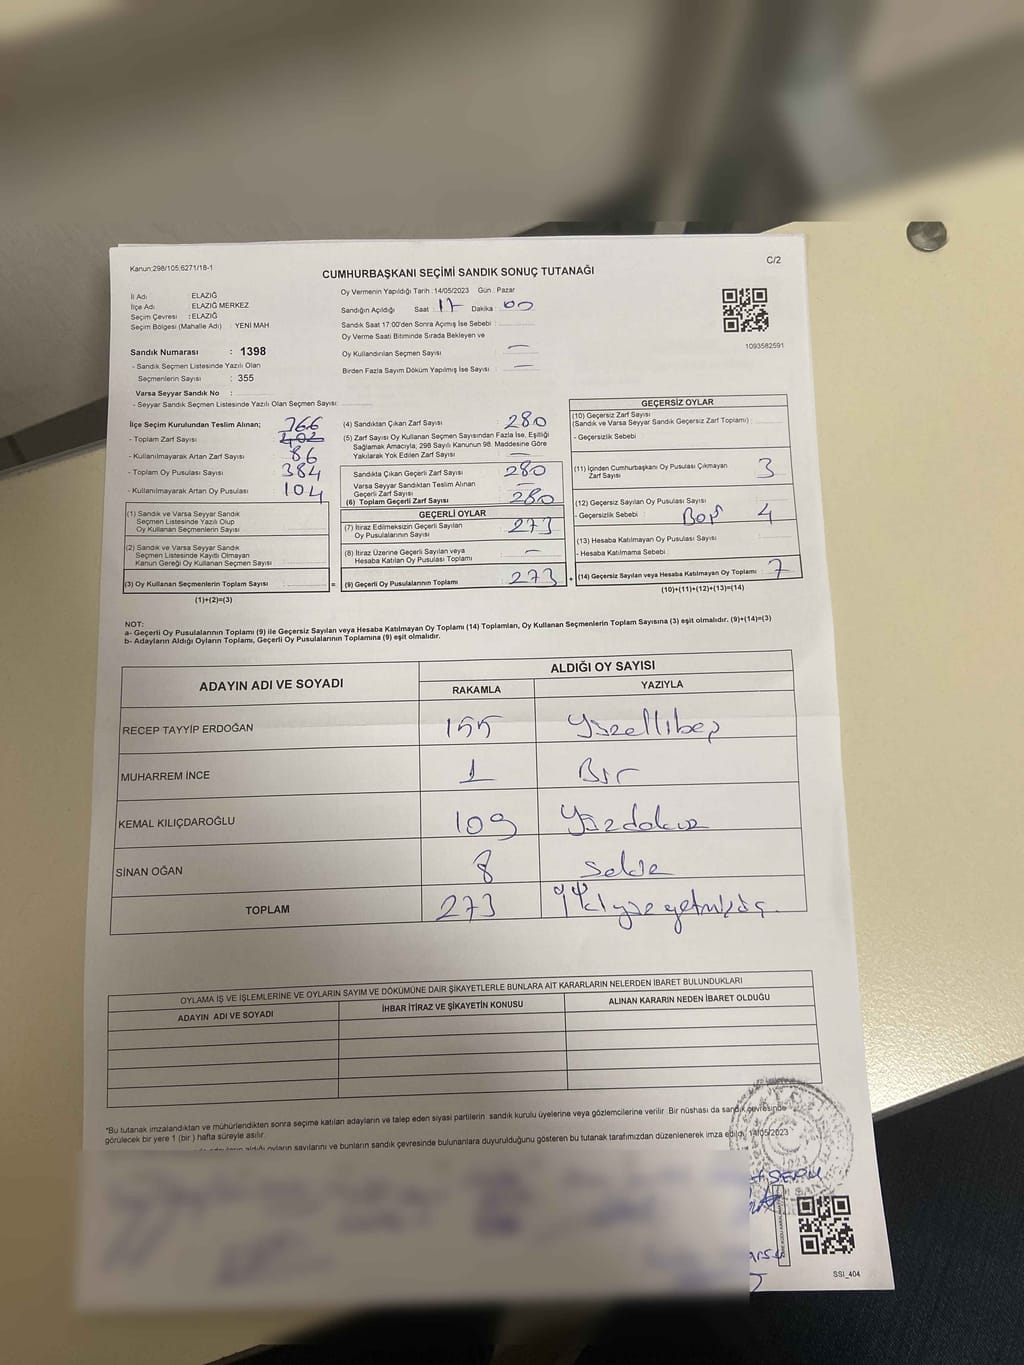 Kanun:298/105:6271/18-1
C/2
CUMHURBAŞKANI SEÇİMİ SANDIK SONUÇ TUTANAĞI
İl Adı : ELAZIĞ
İlçe Adı : ELAZIĞ MERKEZ
Seçim Çevresi : ELAZIĞ
Seçim Bölgesi (Mahalle Adı) : YENİ MAH
Sandık Numarası : 1398
- Sandık Seçmen Listesinde Yazılı Olan
Seçmenlerin Sayısı : 355
Varsa Seyyar Sandık No :
- Seyyar Sandık Seçmen Listesinde Yazılı Olan Seçmen Sayısı:
Oy Vermenin Yapıldığı Tarih :14/05/2023 Gün : Pazar
Sandığın Açıldığı Saat 17 Dakika 00
Sandık Saat 17:00'den Sonra Açımış İse Sebebi :
Oy Verme Saati Bitiminde Sırada Bekleyen ve
Oy Kullandırılan Seçmen Sayısı —
Birden Fazla Sayım Döküm Yapılmış İse Sayısı : —
1093582591
İlçe Seçim Kurulundan Teslim Alınan; 366
- Toplam Zarf Sayısı 402
- Kullanılmayarak Artan Zarf Sayısı 86
- Toplam Oy Pusulası Sayısı 384
- Kullanılmayarak Artan Oy Pusulası 104
(1) Sandık ve Varsa Seyyar Sandık
Seçmen Listesinde Yazılı Olup
Oy Kullanan Seçmenlerin Sayısı
(2) Sandık ve Varsa Seyyar Sandık
Seçmen Listesinde Kayıtlı Olmayan
Kanun Gereği Oy Kullanan Seçmen Sayısı
(3) Oy Kullanan Seçmenlerin Toplam Sayısı =
(1)+(2)=(3)
(4) Sandıktan Çıkan Zarf Sayısı : 280
(5) Zarf Sayısı Oy Kullanan Seçmen Sayısından Fazla İse, Eşitliği
Sağlamak Amacıyla; 298 Sayılı Kanunun 98. Maddesine Göre
Yakılarak Yok Edilen Zarf Sayısı —
Sandıkta Çıkan Geçerli Zarf Sayısı 280
Varsa Seyyar Sandıktan Teslim Alınan
Geçerli Zarf Sayısı —
(6) Toplam Geçerli Zarf Sayısı 280
GEÇERLİ OYLAR
(7) İtiraz Edilmeksizin Geçerli Sayılan
Oy Pusulalarının Sayısı: 273
(8) İtiraz Üzerine Geçerli Sayılan veya
Hesaba Katılan Oy Pusulası Toplamı —
(9) Geçerli Oy Pusulalarının Toplamı 273 +
GEÇERSİZ OYLAR
(10) Geçersiz Zarf Sayısı
(Sandık ve Varsa Seyyar Sandık Geçersiz Zarf Toplamı) :
- Geçersizlik Sebebi
(11) İçinden Cumhurbaşkanı Oy Pusulası Çıkmayan
Zarf Sayısı 3
(12) Geçersiz Sayılan Oy Pusulası Sayısı
- Geçersizlik Sebebi : Boş 4
(13) Hesaba Katılmayan Oy Pusulası Sayısı
- Hesaba Katılmama Sebebi :
(14) Geçersiz Sayılan veya Hesaba Katılmayan Oy Toplamı 7
(10)+(11)+(12)+(13)=(14)
NOT:
a- Geçerli Oy Pusulalarının Toplamı (9) ile Geçersiz Sayılan veya Hesaba Katılmayan Oy Toplamı (14) Toplamları, Oy Kullanan Seçmenlerin Toplam Sayısına (3) eşit olmalıdır. (9)+(14)=(3)
b- Adayların Aldığı Oyların Toplamı, Geçerli Oy Pusulalarının Toplamına (9) eşit olmalıdır.
ADAYIN ADI VE SOYADI
ALDIĞI OY SAYISI
RAKAMLA YAZIYLA
RECEP TAYYİP ERDOĞAN 155 Yüzellibeş
MUHARREM İNCE 1 Bir
KEMAL KILIÇDAROĞLU 109 Yüzdokuz
SİNAN OĞAN 8 Sekiz
TOPLAM 273 İkiyüzyetmişüç
OYLAMA İŞ VE İŞLEMLERİNE VE OYLARIN SAYIM VE DÖKÜMÜNE DAİR ŞİKAYETLERLE BUNLARA AİT KARARLARIN NELERDEN İBARET BULUNDUKLARI
ADAYIN ADI VE SOYADI İHBAR İTİRAZ VE ŞİKAYETİN KONUSU ALINAN KARARIN NEDEN İBARET OLDUĞU
*Bu tutanak imzalandıktan ve mühürlendikten sonra seçime katılan adayların ve talep eden siyasi partilerin sandık kurulu üyelerine veya gözlemcilerine verilir. Bir nüshası da sandık çevresinde
görülecek bir yere 1 (bir) hafta süreyle asılır.
aldığı oyların sayılarını ve bunların sandık çevresinde bulunanlara duyurulduğunu gösteren bu tutanak tarafımızdan düzenlenerek imza edildi. 14/05/2023
SSI_404